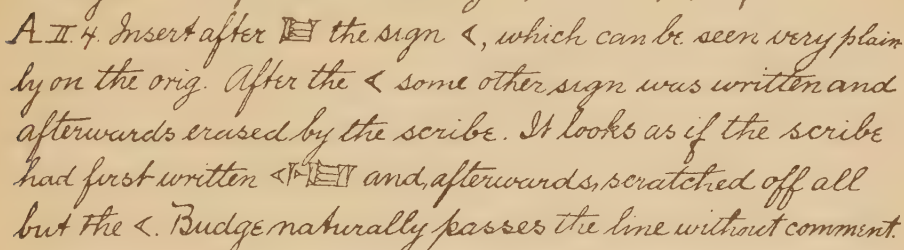 A II. 4. Insert after the sign <, which can be seen very plain-
ly on the orig. After the < some other sign was written and
afterwards erased by the scribe. It looks as if the scribe
had first written < and, afterwards, scratched off all
but the <. Budge naturally passes the line without comment.